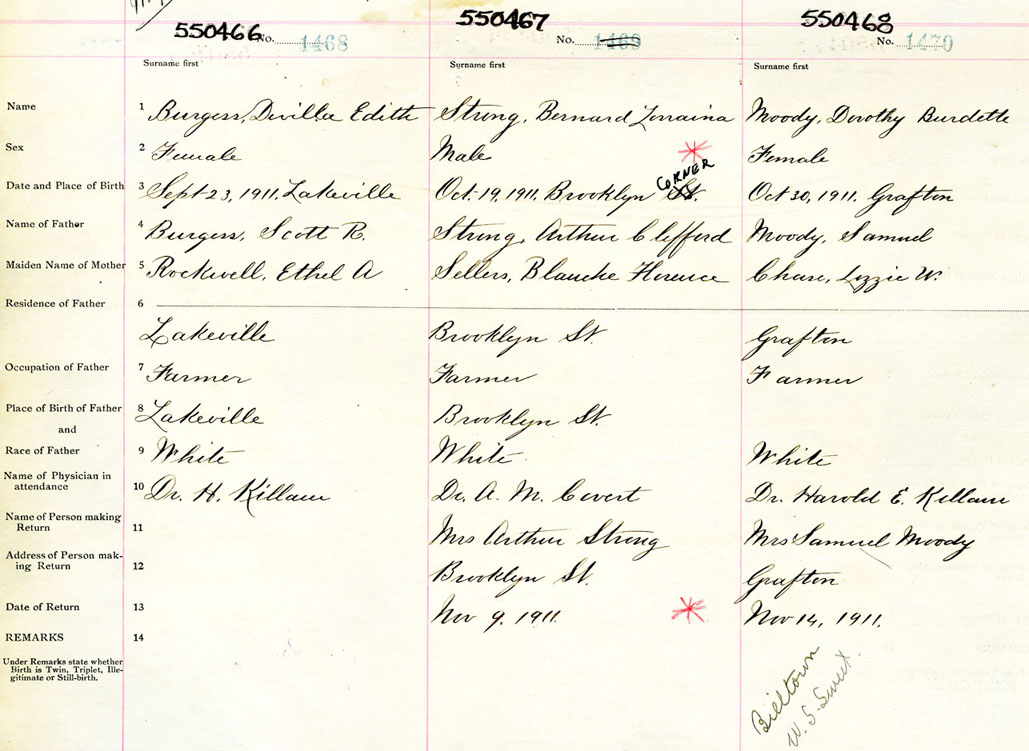 550466 550467 550468
No. 1468 No. 1469 No. 1470
Surname first Surname first Surname first
Name 1 Burgess, Devilla Edith Strong, Bernard Lorraina Moody, Dorothy Burdette
Sex 2 Female Male * Female
Date and Place of Birth 3 Sept 23, 1911. Lakeville Oct. 19, 1911. Brooklyn St. CORNER Oct 30, 1911. Grafton
Name of Father 4 Burgess, Scott R. Strong, Arthur Clifford Moody, Samuel
Maiden Name of Mother 5 Rockwell, Ethel A Sellers, Blanche Florence Chase, Lizzie W.
Residence of Father 6
Lakeville Brooklyn St. Grafton
Occupation of Father 7 Farmer Farmer Farmer
Place of Birth of Father 8 Lakeville Brooklyn St.
and
Race of Father 9 White White White
Name of Physician in
attendance 10 Dr. H. Killam Dr. A. M. Covert Dr. Harold E. Killam
Name of Person making
Return 11 Mrs Arthur Strong Mrs Samuel Moody
Address of Person mak-
ing Return 12 Brooklyn St. Grafton
Date of Return 13 Nov 9, 1911. * Nov 14, 1911.
REMARKS 14
Under Remarks state whether
Birth is Twin, Triplet, Ille-
gitimate or Still-birth.
Billtown
W. S. Sweet.